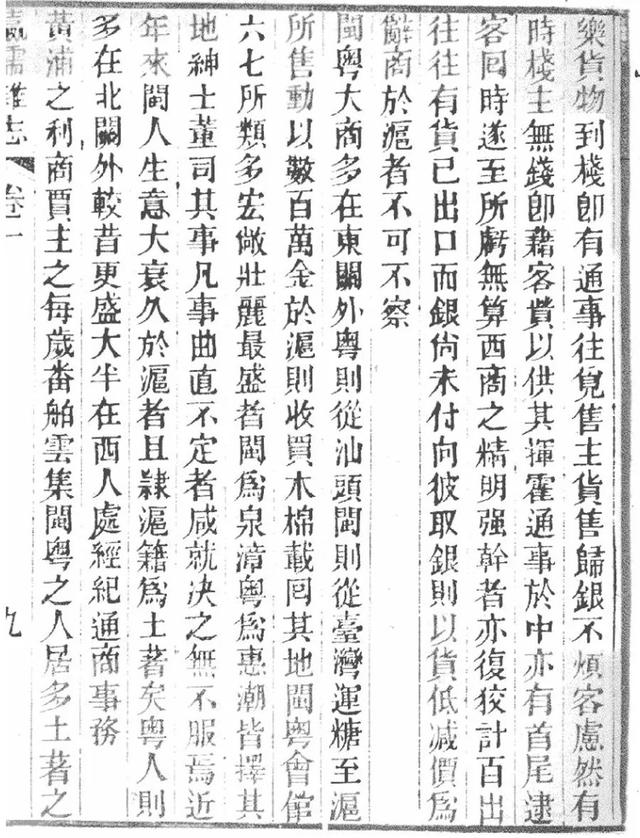 樂貨物到棧卽有通事往覓售主貨售歸銀不煩客慮然有
時棧主無錢卽藉客貲以供其揮霍通事於中亦有首尾逮
客囘時遂至所虧無算西商之精明强幹者亦復狡計百出
往往有貨已出口而銀尙未付向彼取銀則以貨低減價爲
辭商於滬者不可不察
閩粵大商多在東關外粵則從汕頭閩則從臺灣運糖至滬
所售動以數百萬金於滬則收買木棉載囘其地閩粵會館
六七所類多宏敞壯麗最盛者閩爲泉漳粵爲惠潮皆擇其
地紳士董司其事凡事曲直不定者咸就決之無不服焉近
年來閩人生意大衰久於滬者且隸滬籍爲土著矣粵人則
多在北關外較昔更盛大半在西人處經紀通商事務
黃浦之利商賈主之每歲番舶雲集閩粵之人居多土著之
瀛壖雜志 卷一 九